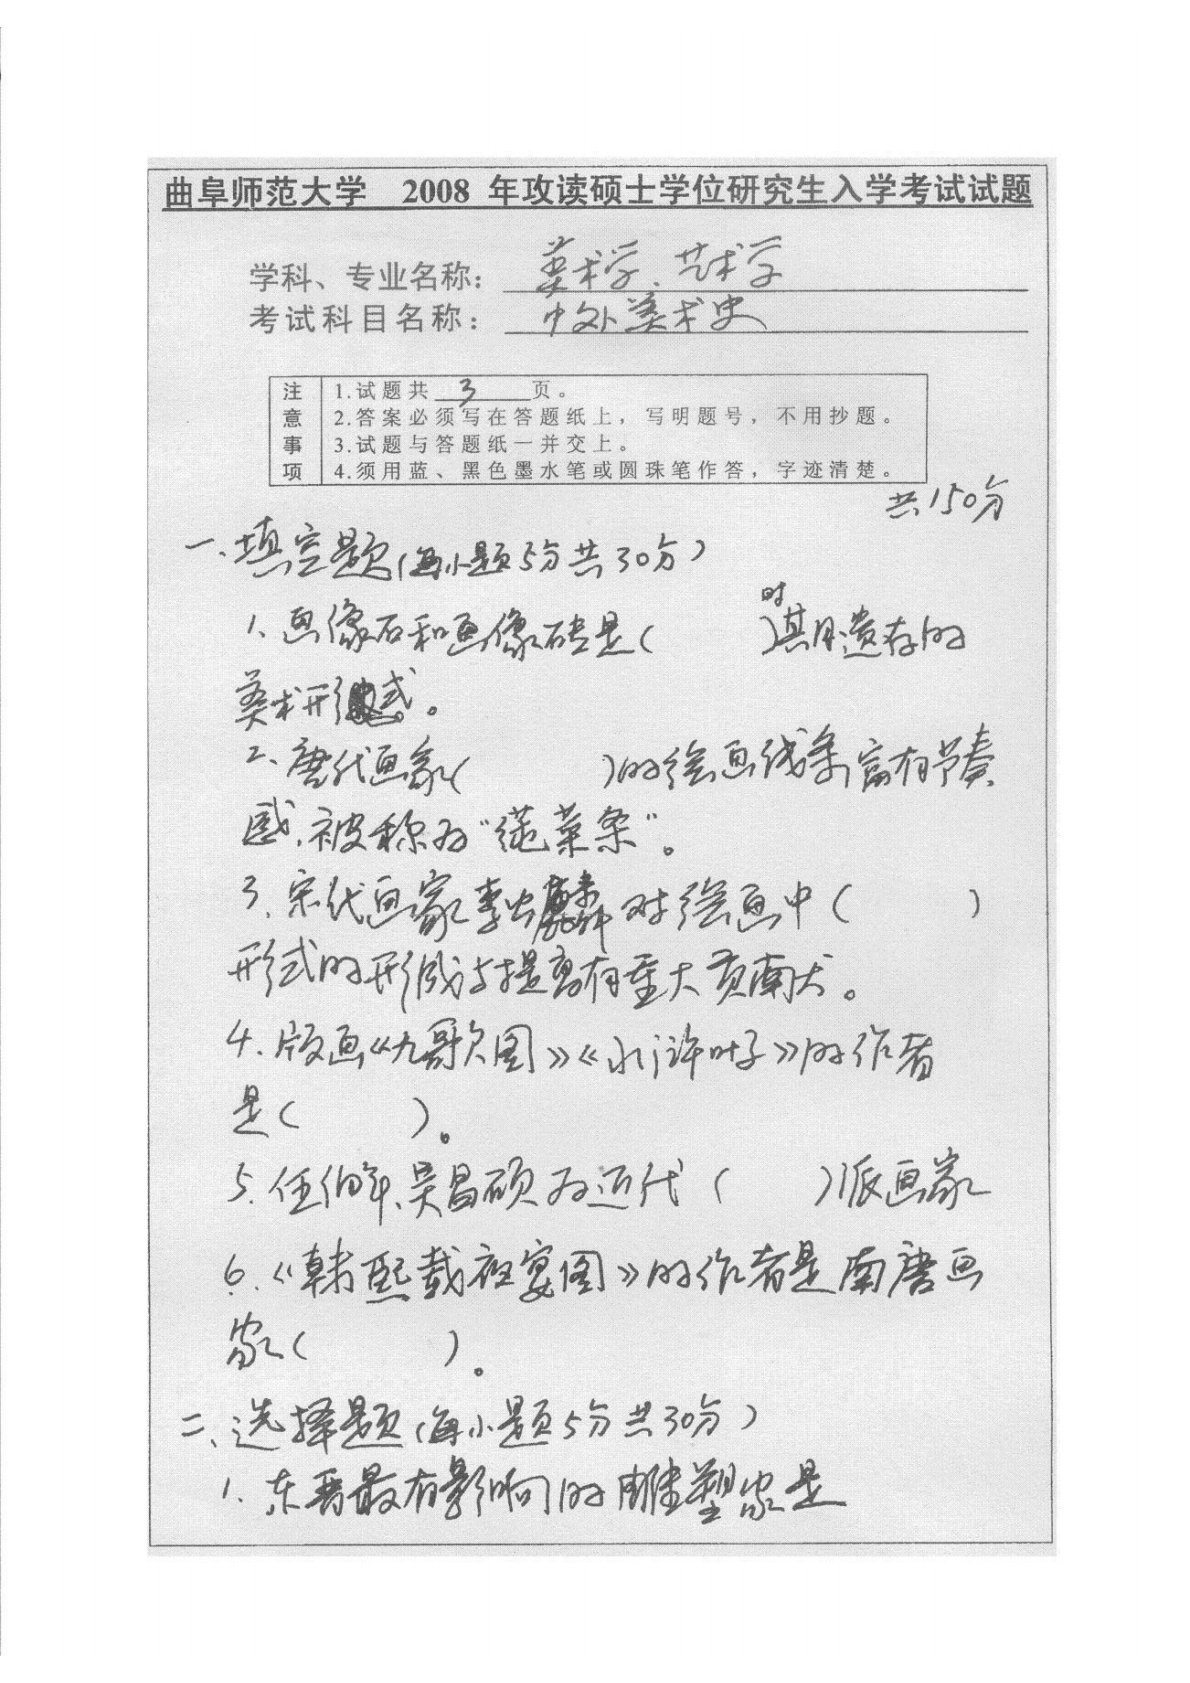 曲阜师范大学 2008 年攻读硕士学位研究生入学考试试题
学科、专业名称： 美术学、艺术学
考试科目名称： 中外美术史
注意事项
1.试题共 3 页。
2.答案必须写在答题纸上，写明题号，不用抄题。
3.试题与答题纸一并交上。
4.须用蓝、黑色墨水笔或圆珠笔作答，字迹清楚。
共150分
一、填空题（每小题5分共30分）
1、画像石和画像砖是（ ）时期遗存的
美术形式。
2、唐代画家（ ）的绘画线条富有节奏
感，被称为“莼菜条”。
3、宋代画家李公麟对绘画中（ ）
形式的形成与提高有重大贡献。
4、版画《九歌图》《水浒叶子》的作者
是（ ）。
5、任伯年、吴昌硕为近代（ ）派画家
6、《韩熙载夜宴图》的作者是南唐画
家（ ）。
二、选择题（每小题5分共30分）
1、东晋最有影响的雕塑家是